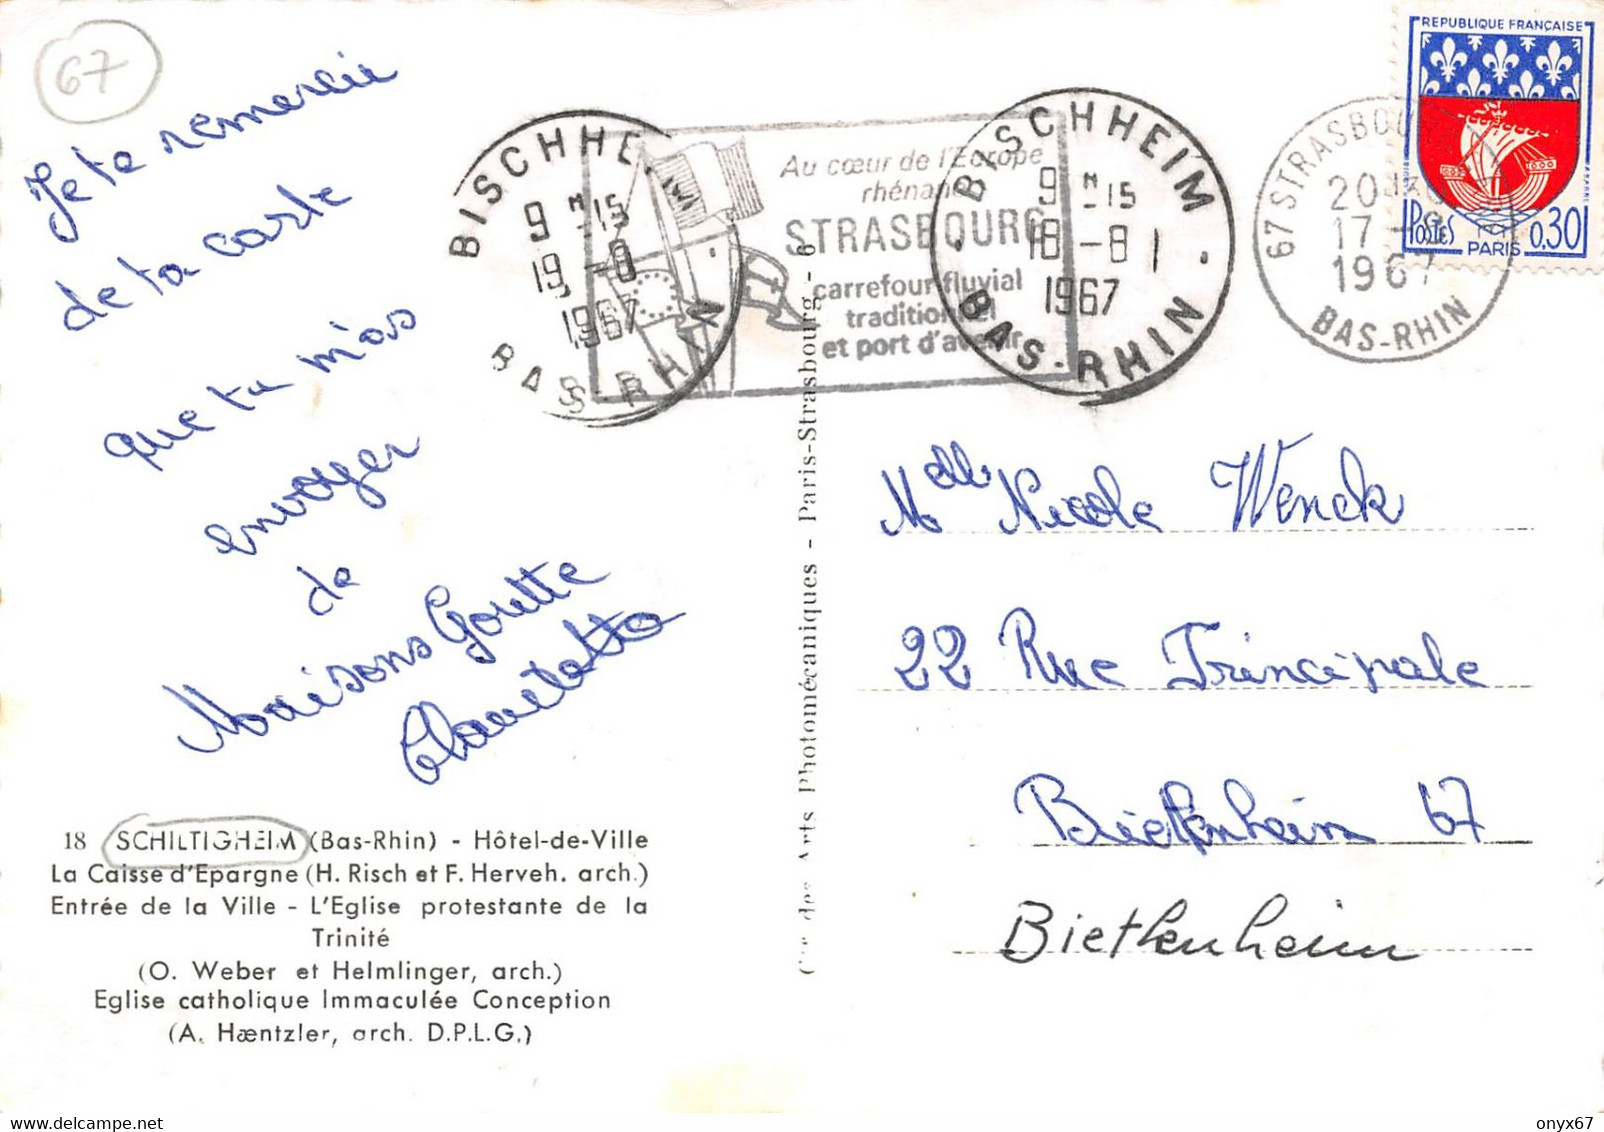 67
Je te remercie
de ta carte
que tu m'as
envoyer
de
Maisons Goutte
Claudette
18 SCHILTIGHEIM (Bas-Rhin) - Hôtel-de-Ville
La Caisse d'Epargne (H. Risch et F. Herveh. arch.)
Entrée de la Ville - L'Eglise protestante de la
Trinité
(O. Weber et Helmlinger, arch.)
Eglise catholique Immaculée Conception
(A. Hæntzler, arch. D.P.L.G.)
des Arts Photomécaniques - Paris-Strasbourg - 6
BISCHHEIM
9 H 15
19 -8
1967
BAS-RHIN
Au cœur de l'Europe
rhénane
STRASBOURG
carrefour fluvial
traditionnel
et port d'avenir
BISCHHEIM
9 H 15
18 -8
1967
BAS-RHIN
67 STRASBOURG
17 -8
1967
BAS-RHIN
REPUBLIQUE FRANÇAISE
Postes
PARIS
0,30
Mdlle Nicole Wenck
22 Rue Principale
Bietlenheim 67
Bietlenheim
onyx67